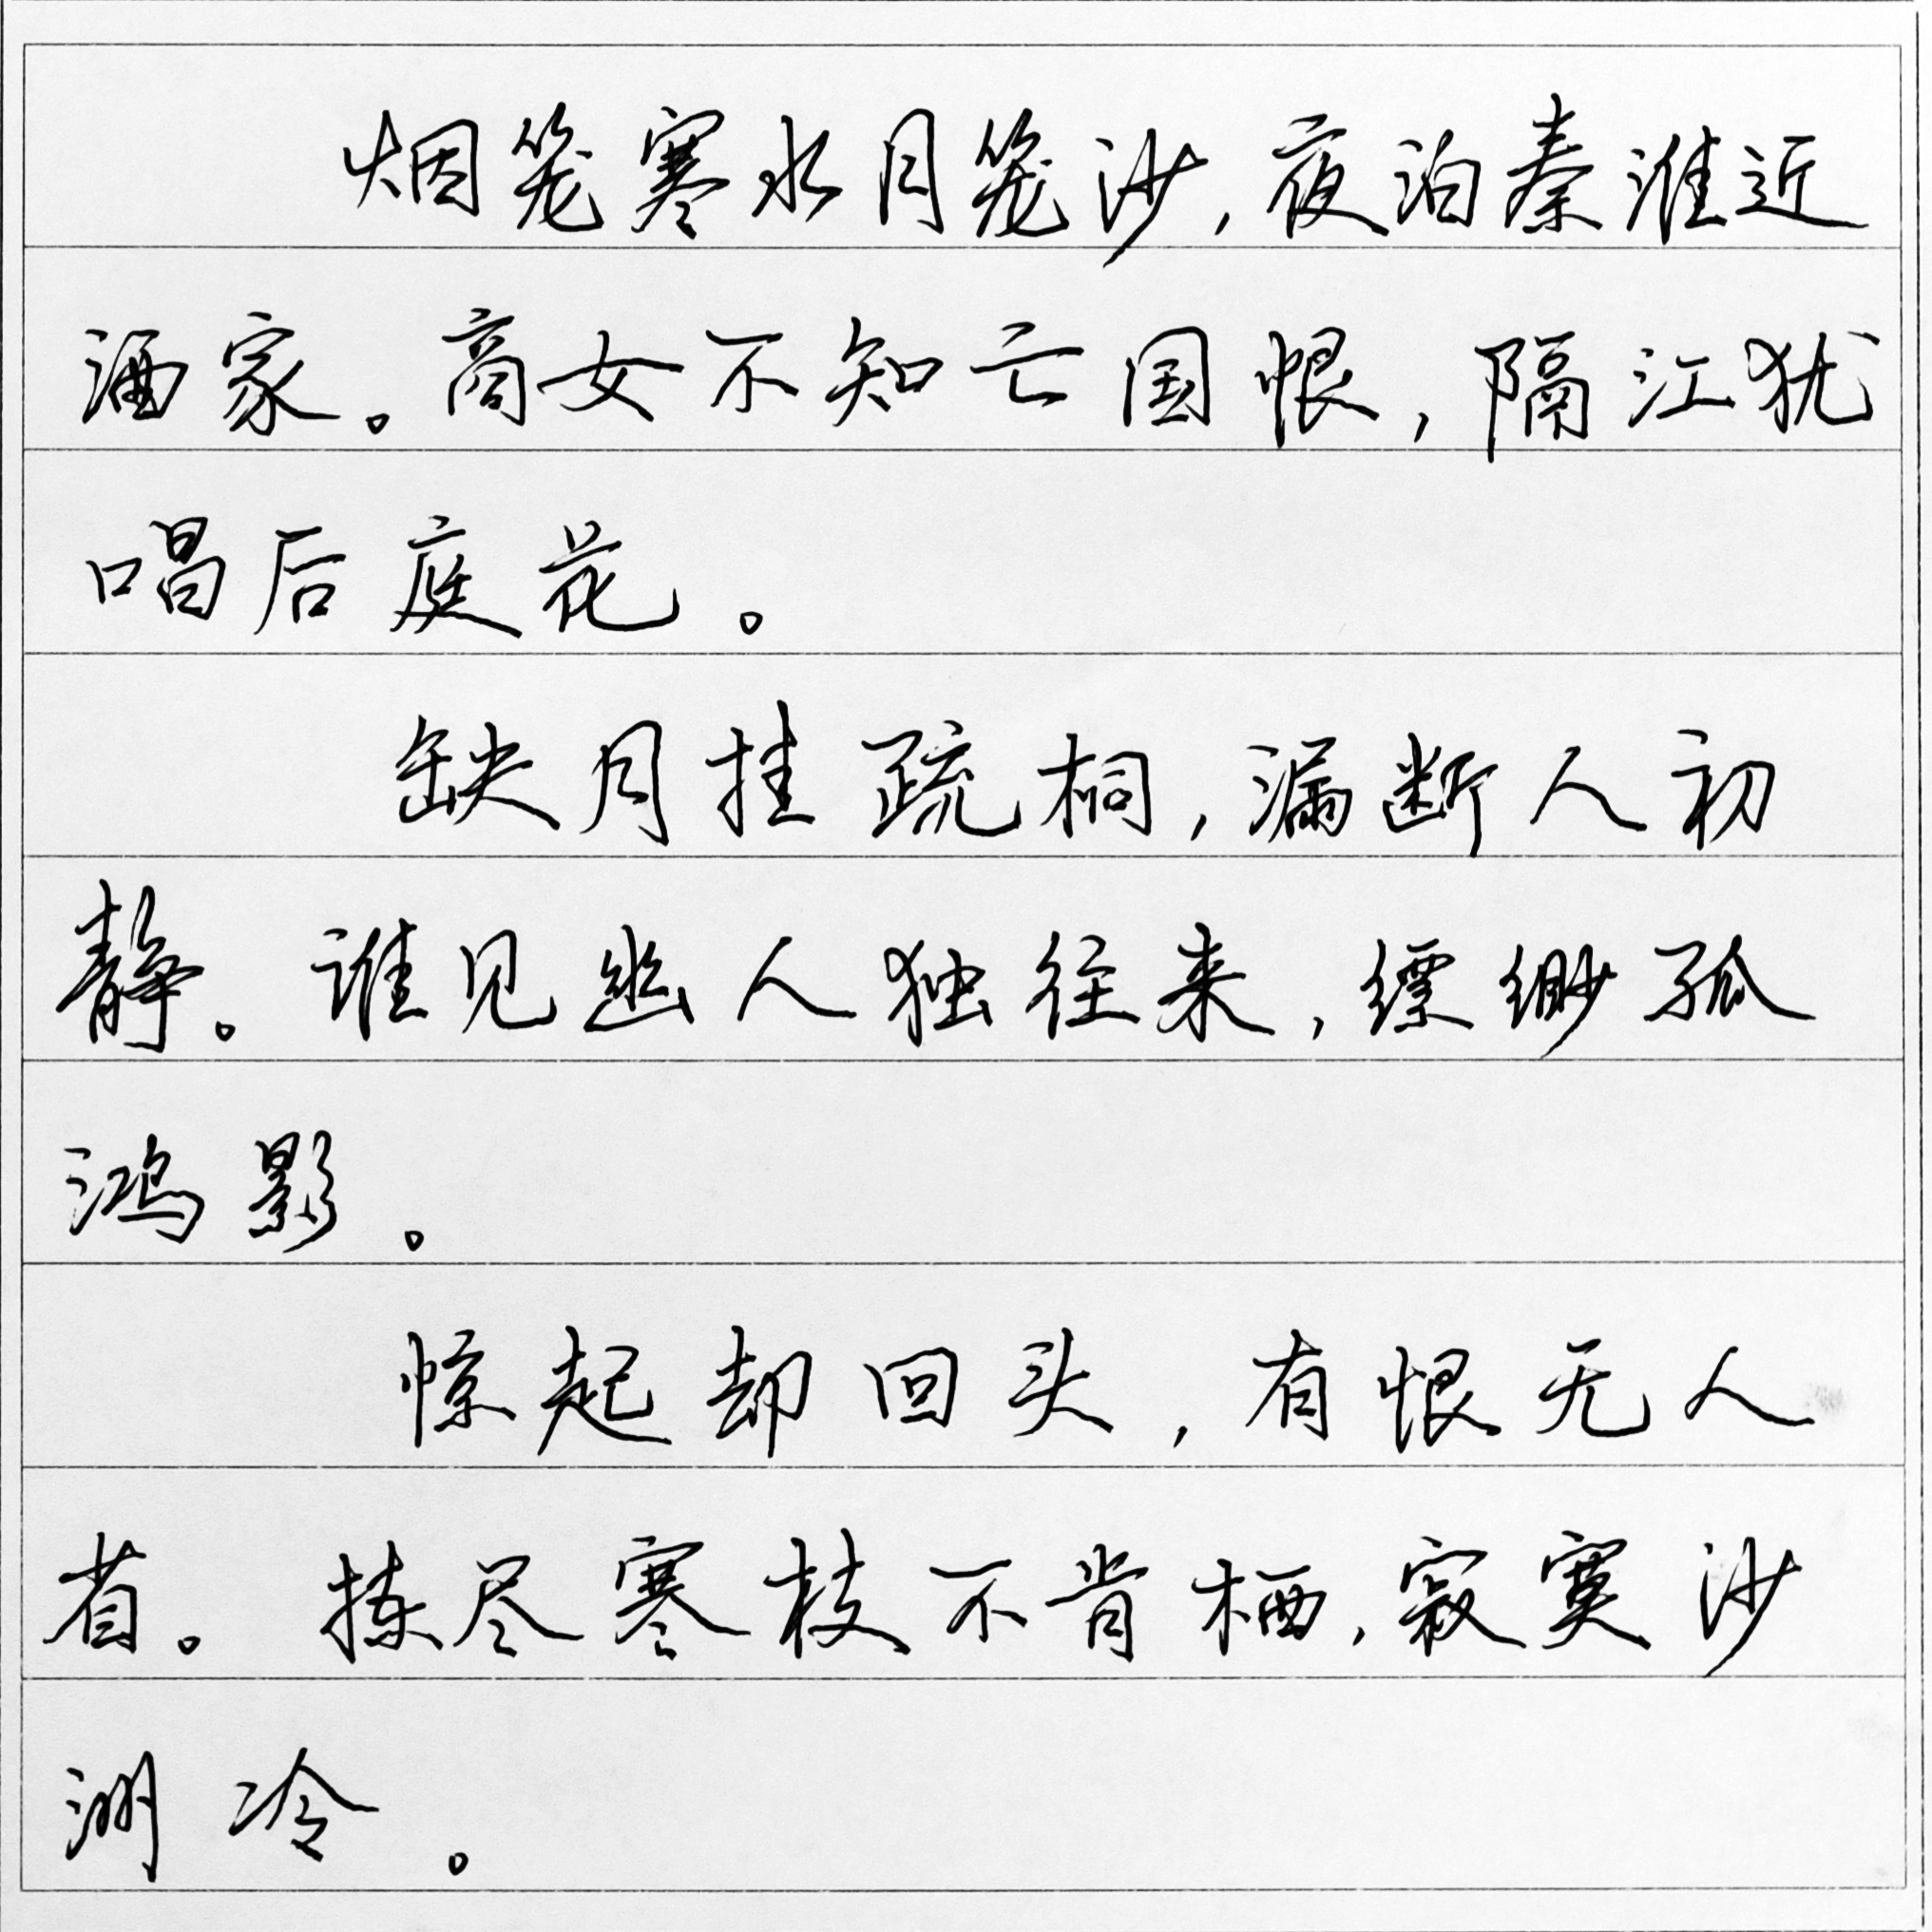 烟笼寒水月笼沙，夜泊秦淮近
酒家。商女不知亡国恨，隔江犹
唱后庭花。
缺月挂疏桐，漏断人初
静。谁见幽人独往来，缥缈孤
鸿影。
惊起却回头，有恨无人
省。拣尽寒枝不肯栖，寂寞沙
洲冷。